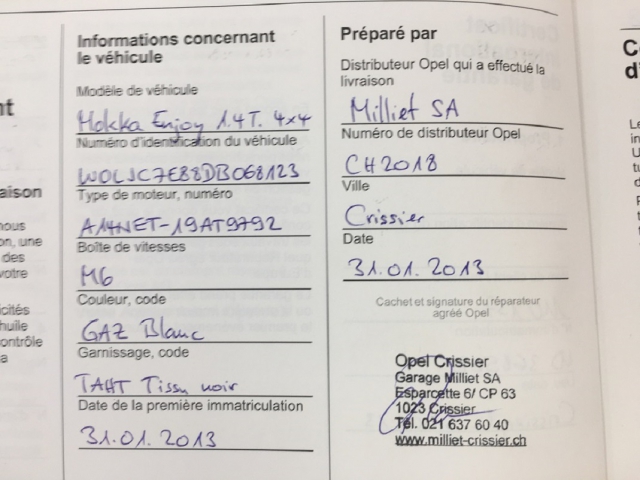 Informations concernant
le véhicule
Modèle de véhicule
Mokka Enjoy 1.4T. 4x4
Numéro d'identification du véhicule
W0LJC7E88DB068123
Type de moteur, numéro
A14NET-19AT9792
Boîte de vitesses
M6
Couleur, code
GAZ Blanc
Garnissage, code
TAHT Tissu noir
Date de la première immatriculation
31.01.2013
Préparé par
Distributeur Opel qui a effectué la
livraison
Milliet SA
Numéro de distributeur Opel
CH2018
Ville
Crissier
Date
31.01.2013
Cachet et signature du réparateur
agréé Opel
Opel Crissier
Garage Milliet SA
Esparcette 6/ CP 63
1023 Crissier
Tél. 021 637 60 40
www.milliet-crissier.ch